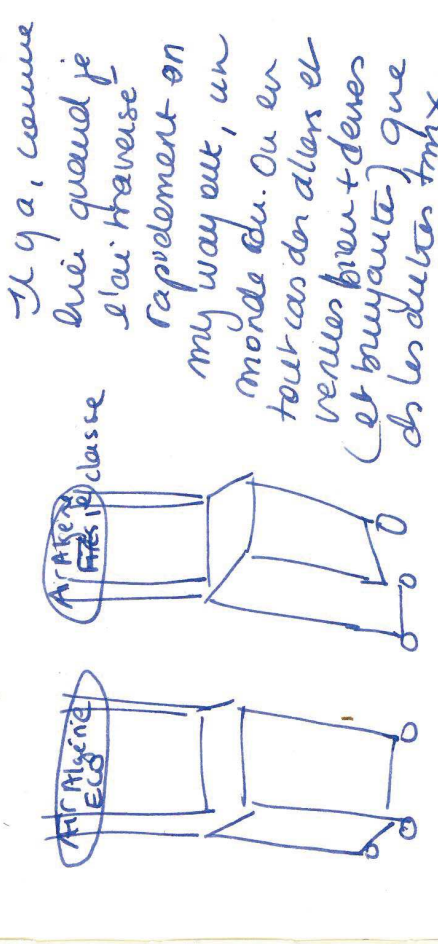 Air Algérie
ECO
Air Algérie
1re classe
Il y a, comme
hier quand je
l'ai traversé
rapidement on
my way out, un
monde fou. Ou en
tout cas des allers et
venues bien + denses
(et bruyantes) que
ds les autres tmx